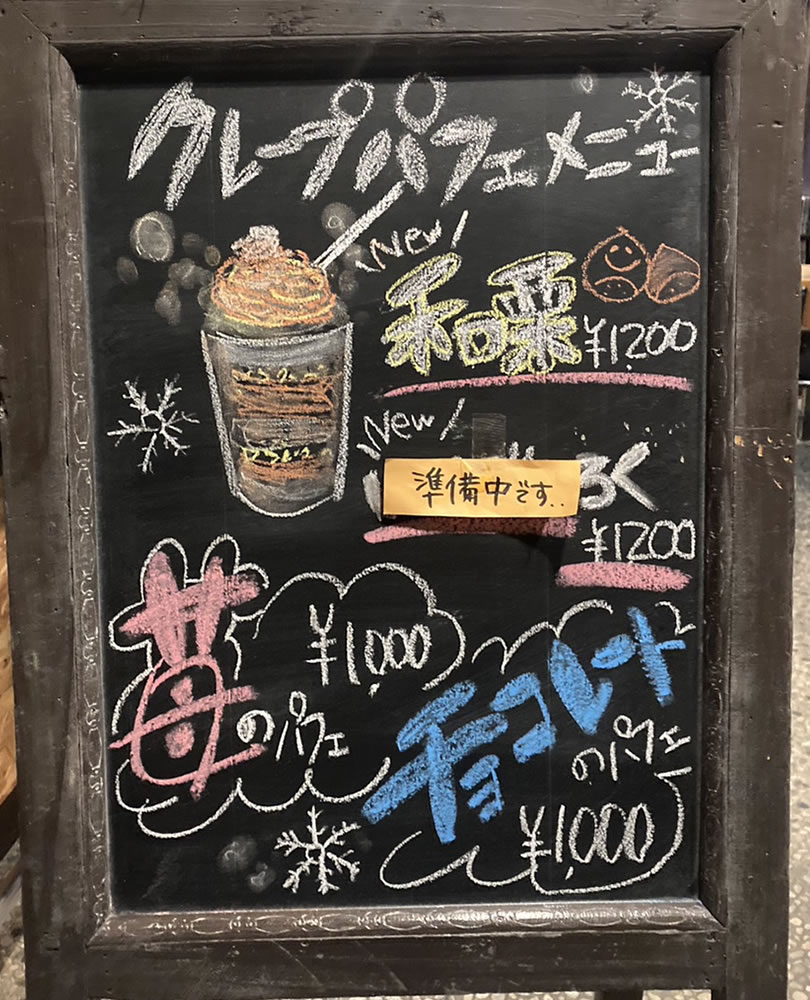 クレープパフェメニュー
New
和栗
¥1,200
New
準備中です..
ろく
¥1,200
苺のパフェ
¥1,000
チョコレートのパフェ
¥1,000